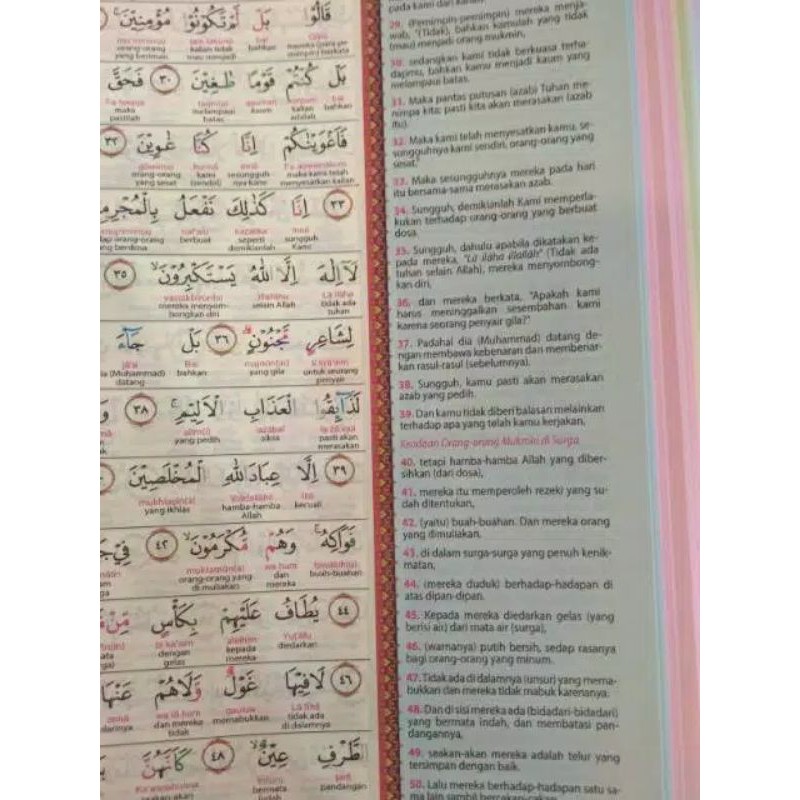 قَالُوْا بَلْ لَّمْ تَكُوْنُوْا مُؤْمِنِيْنَ
bahkan
kalian tidak
orang-orang
yang beriman
بَلْ كُنْتُمْ قَوْمًا طٰغِيْنَ ٣٠ فَحَقَّ
bahkan
kalian
adalah
kaum
melampaui
batas
maka
pastilah
فَاَغْوَيْنٰكُمْ اِنَّا كُنَّا غٰوِيْنَ ٣٢
maka kami telah
menyesatkan kalian
sesungguh
nya kami
kami
(sendiri)
orang-orang
yang sesat
٣٣ اِنَّا كَذٰلِكَ نَفْعَلُ بِالْمُجْرِمِ
sungguh
Kami
seperti
demikianlah
berbuat
ap orang-orang
لَآ اِلٰهَ اِلَّا اللّٰهُ يَسْتَكْبِرُوْنَ ٣٥
Lā ilāha
tidak ada
tuhan
selain Allah
mereka menyom-
bongkan diri
لِشَاعِرٍ مَّجْنُوْنٍ ٣٦ بَلْ جَاۤءَ
untuk seorang
penyair
yang gila
bahkan
(Muhammad)
datang
لَذَاۤىِٕقُوا الْعَذَابِ الْاَلِيْمِ ٣٨ وَ
pasti akan
merasakan
siksa
yang pedih
٣٩ اِلَّا عِبَادَ اللّٰهِ الْمُخْلَصِيْنَ
illā
kecuali
hamba-hamba
Allah
yang ikhlas
فَوَاكِهُ وَهُمْ مُّكْرَمُوْنَ ٤٢ فِيْ جَ
buah-buahan
wa hum
dan
mereka
orang-orang yang
di muliakan
٤٤ يُطَافُ عَلَيْهِمْ بِكَأْسٍ مِّنْ
Yuṭāfu
diedarkan
'alaihim
kepada
mereka
bi ka'sim
dengan
gelas
٤٦ لَا فِيْهَا غَوْلٌ وَّلَا هُمْ عَنْهَا
Lā fīhā
tidak ada
di dalamnya
memabukkan
dan mereka
tidak
darinya
الطَّرْفِ عِيْنٌ ٤٨ كَاَنَّهُنَّ
pandangan
bermata
indah
seakan-akan
pada kami dari kanan.
29. (Pemimpin-pemimpin) mereka menja-
wab, "(Tidak), bahkan kamulah yang tidak
(mau) menjadi orang mukmin,
30. sedangkan kami tidak berkuasa terha-
dapmu, bahkan kamu menjadi kaum yang
melampaui batas.
31. Maka pantas putusan (azab) Tuhan me-
nimpa kita; pasti kita akan merasakan (azab
itu).
32. Maka kami telah menyesatkan kamu, se-
sungguhnya kami sendiri, orang-orang yang
sesat."
33. Maka sesungguhnya mereka pada hari
itu bersama-sama merasakan azab.
34. Sungguh, demikianlah Kami memperla-
kukan terhadap orang-orang yang berbuat
dosa.
35. Sungguh, dahulu apabila dikatakan ke-
pada mereka, "Lā ilāha illallāh" (Tidak ada
tuhan selain Allah), mereka menyombong-
kan diri,
36. dan mereka berkata, "Apakah kami
harus meninggalkan sesembahan kami
karena seorang penyair gila?"
37. Padahal dia (Muhammad) datang de-
ngan membawa kebenaran dan membenar-
kan rasul-rasul (sebelumnya).
38. Sungguh, kamu pasti akan merasakan
azab yang pedih.
39. Dan kamu tidak diberi balasan melainkan
terhadap apa yang telah kamu kerjakan,
Keadaan Orang-orang Mukmin di Surga
40. tetapi hamba-hamba Allah yang diber-
sihkan (dari dosa),
41. mereka itu memperoleh rezeki yang su-
dah ditentukan,
42. (yaitu) buah-buahan. Dan mereka orang
yang dimuliakan,
43. di dalam surga-surga yang penuh kenik-
matan,
44. (mereka duduk) berhadap-hadapan di
atas dipan-dipan.
45. Kepada mereka diedarkan gelas (yang
berisi air) dari mata air (surga),
46. (warnanya) putih bersih, sedap rasanya
bagi orang-orang yang minum.
47. Tidak ada di dalamnya (unsur) yang mema-
bukkan dan mereka tidak mabuk karenanya.
48. Dan di sisi mereka ada (bidadari-bidadari)
yang bermata indah, dan membatasi pan-
dangannya,
49. seakan-akan mereka adalah telur yang
tersimpan dengan baik.
50. Lalu mereka berhadap-hadapan satu sa-
ma lain sambil bercakap-cakap.